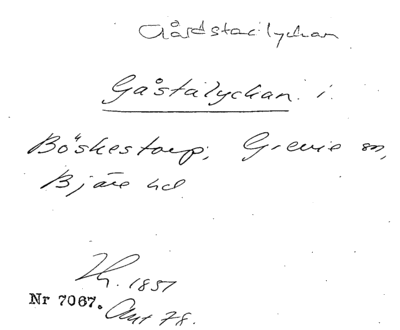 Gårdstacklychan
Gåstalychan. i.
Böskestorp, Grevie sn,
Bjäre hd
1851
Nr 7067. Ant 78.